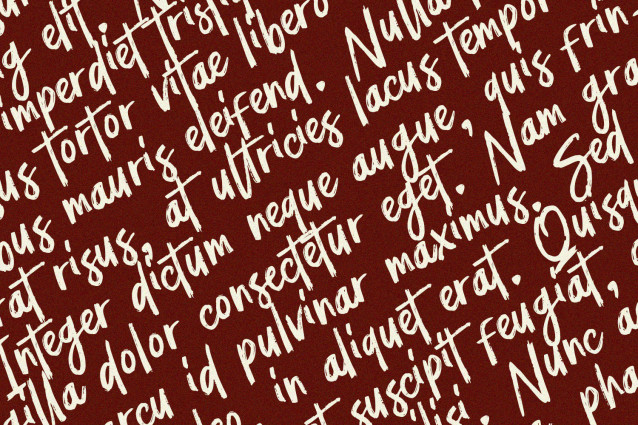 elit.
imperdiet tristi
tortor vitae libero
mauris eleifend. Nulla
risus, at ultricies lacus tempor
Integer dictum neque augue, quis frin
dolor consectetur eget. Nam gra
id pulvinar maximus. Sed
in aliquet erat. Quisq
suscipit feugiat,
Nunc
pha